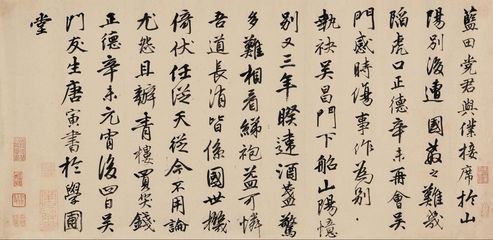 藍田党君與僕接席於山
陽別後遭國之難幾
陷虎口正德辛未再會吳
門感時傷事作為別
執袂吳昌門下船山陽憶
別又三年暌違酒盞驚
多難相看綈袍益可憐
吾道長消皆係國世機
倚伏任從天從今不用論
尤怨且辦青樓買笑錢
正德辛未元宵後四日吳
門友生唐寅書於學圃
堂